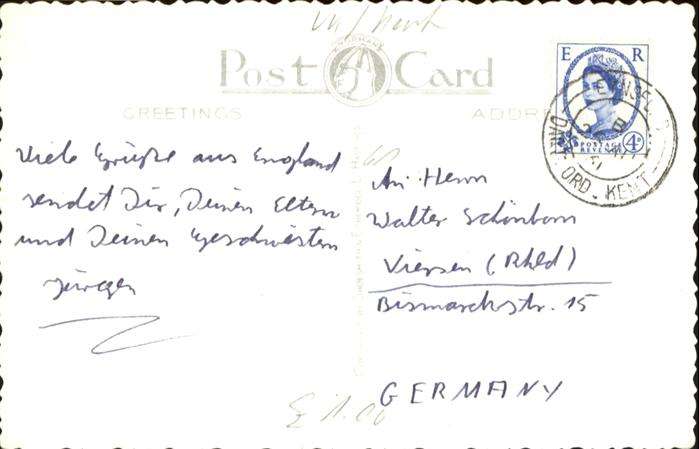 Post Card
GREETINGS
E R
POSTAGE
REVENUE
4D
ORD. KENT
Viele Grüße aus England
sendet Dir, Deinen Eltern
und Deinen Geschwistern
Jürgen
An Herrn
Walter Schönborn
Viersen (Rhld)
Bismarckstr. 15
GERMANY